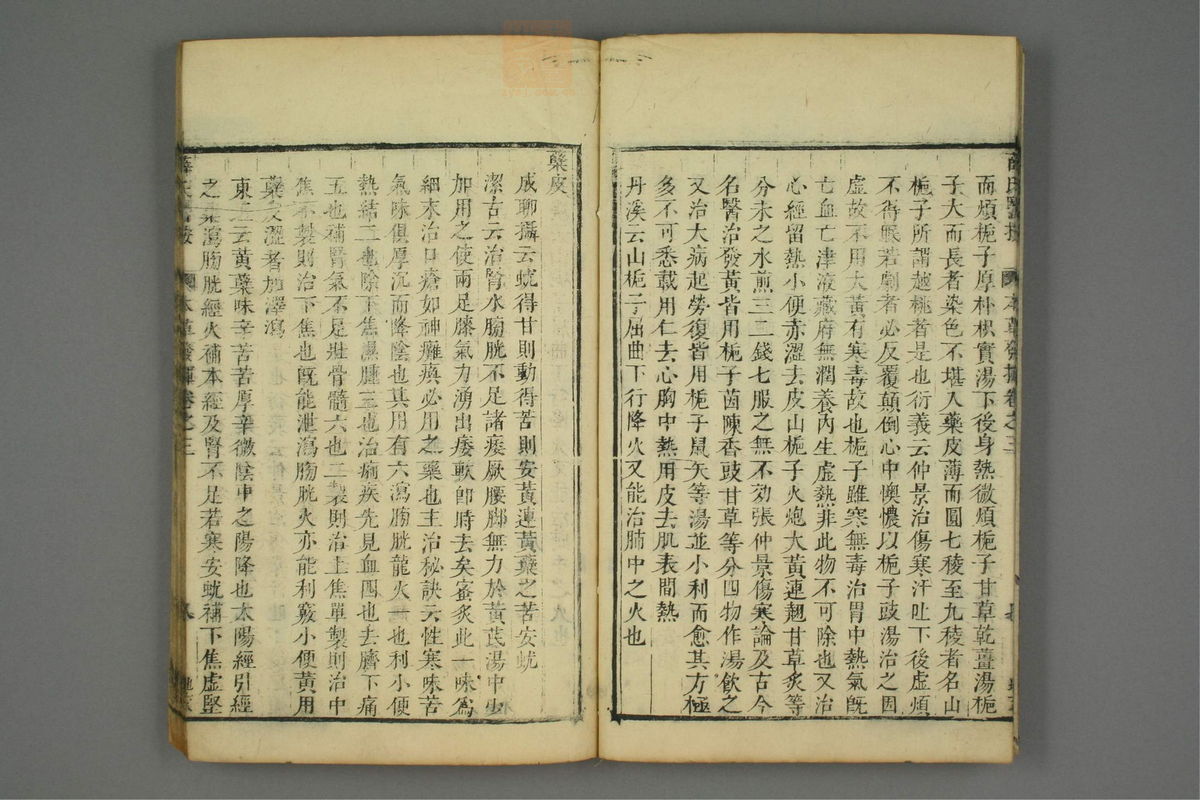 而煩梔子厚朴枳實湯下後身熱微煩梔子甘草乾薑湯梔
子大而長者染色不堪入藥皮薄而圓七稜至九稜者名山
梔子所謂越桃者是也衍義云仲景治傷寒汗吐下後虛煩
不得眠若劇者必反覆顛倒心中懊憹以梔子豉湯治之因
虛故不用大黃有寒毒故也梔子雖寒無毒治胃中熱氣既
亡血亡津液藏府無潤養內生虛熱非此物不可除也又治
心經留熱小便赤澀去皮山梔子火炮大黃連翹甘草炙等
分末之水煎三二錢七服之無不効張仲景傷寒論及古今
名醫治發黃皆用梔子茵陳香豉甘草等分四物作湯飲之
又治大病起勞復皆用梔子鼠矢等湯並小利而愈其方極
多不可悉載用仁去心胸中熱用皮去肌表間熱
丹溪云山梔子屈曲下行降火又能治肺中之火也
蘗皮
成聊攝云蚘得甘則動得苦則安黃連黃蘗之苦安蚘
潔古云治腎水膀胱不足諸痿厥腰脚無力於黃芪湯中少
加用之使兩足膝氣力湧出痿軟卽時去矣蜜炙此一味爲
細末治口瘡如神癱瘓必用之藥也主治秘訣云性寒味苦
氣味俱厚沉而降陰也其用有六瀉膀胱龍火一也利小便
熱結二也除下焦濕腫三也治痢疾先見血四也去臍下痛
五也補腎氣不足壯骨髓六也二製則治上焦單製則治中
焦不製則治下焦也既能泄瀉膀胱火亦能利竅小便黃用
蘗皮澀者加澤瀉
東垣云黃蘗味辛苦苦厚辛微陰中之陽降也太陽經引經
之藥瀉膀胱經火補本經及腎不足若寒安蚘補下焦虛堅
本草發揮卷之三